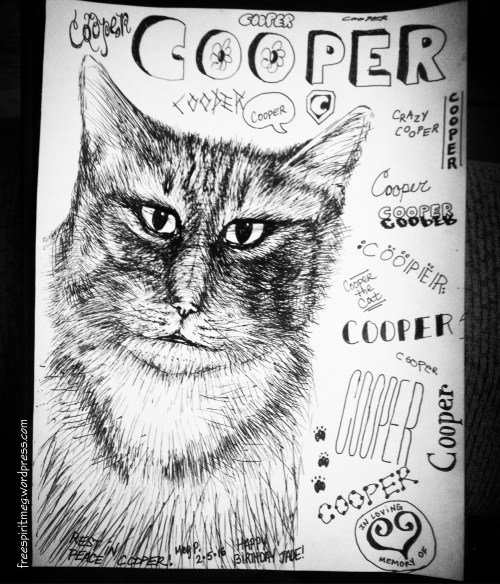 COOPER
COOPER
Cooper
COOPER
COOPER
COOPER
C
CRAZY
COOPER
COOPER
Cooper
COOPER
COOPER
COOPER
Cooper
the
Cat
COOPER
COOPER
COOPER
Cooper
COOPER
IN LOVING
MEMORY OF
REST IN
PEACE COOPER!
Meg P.
2-5-16
HAPPY
BIRTHDAY JADE!
freespiritmeg.wordpress.com